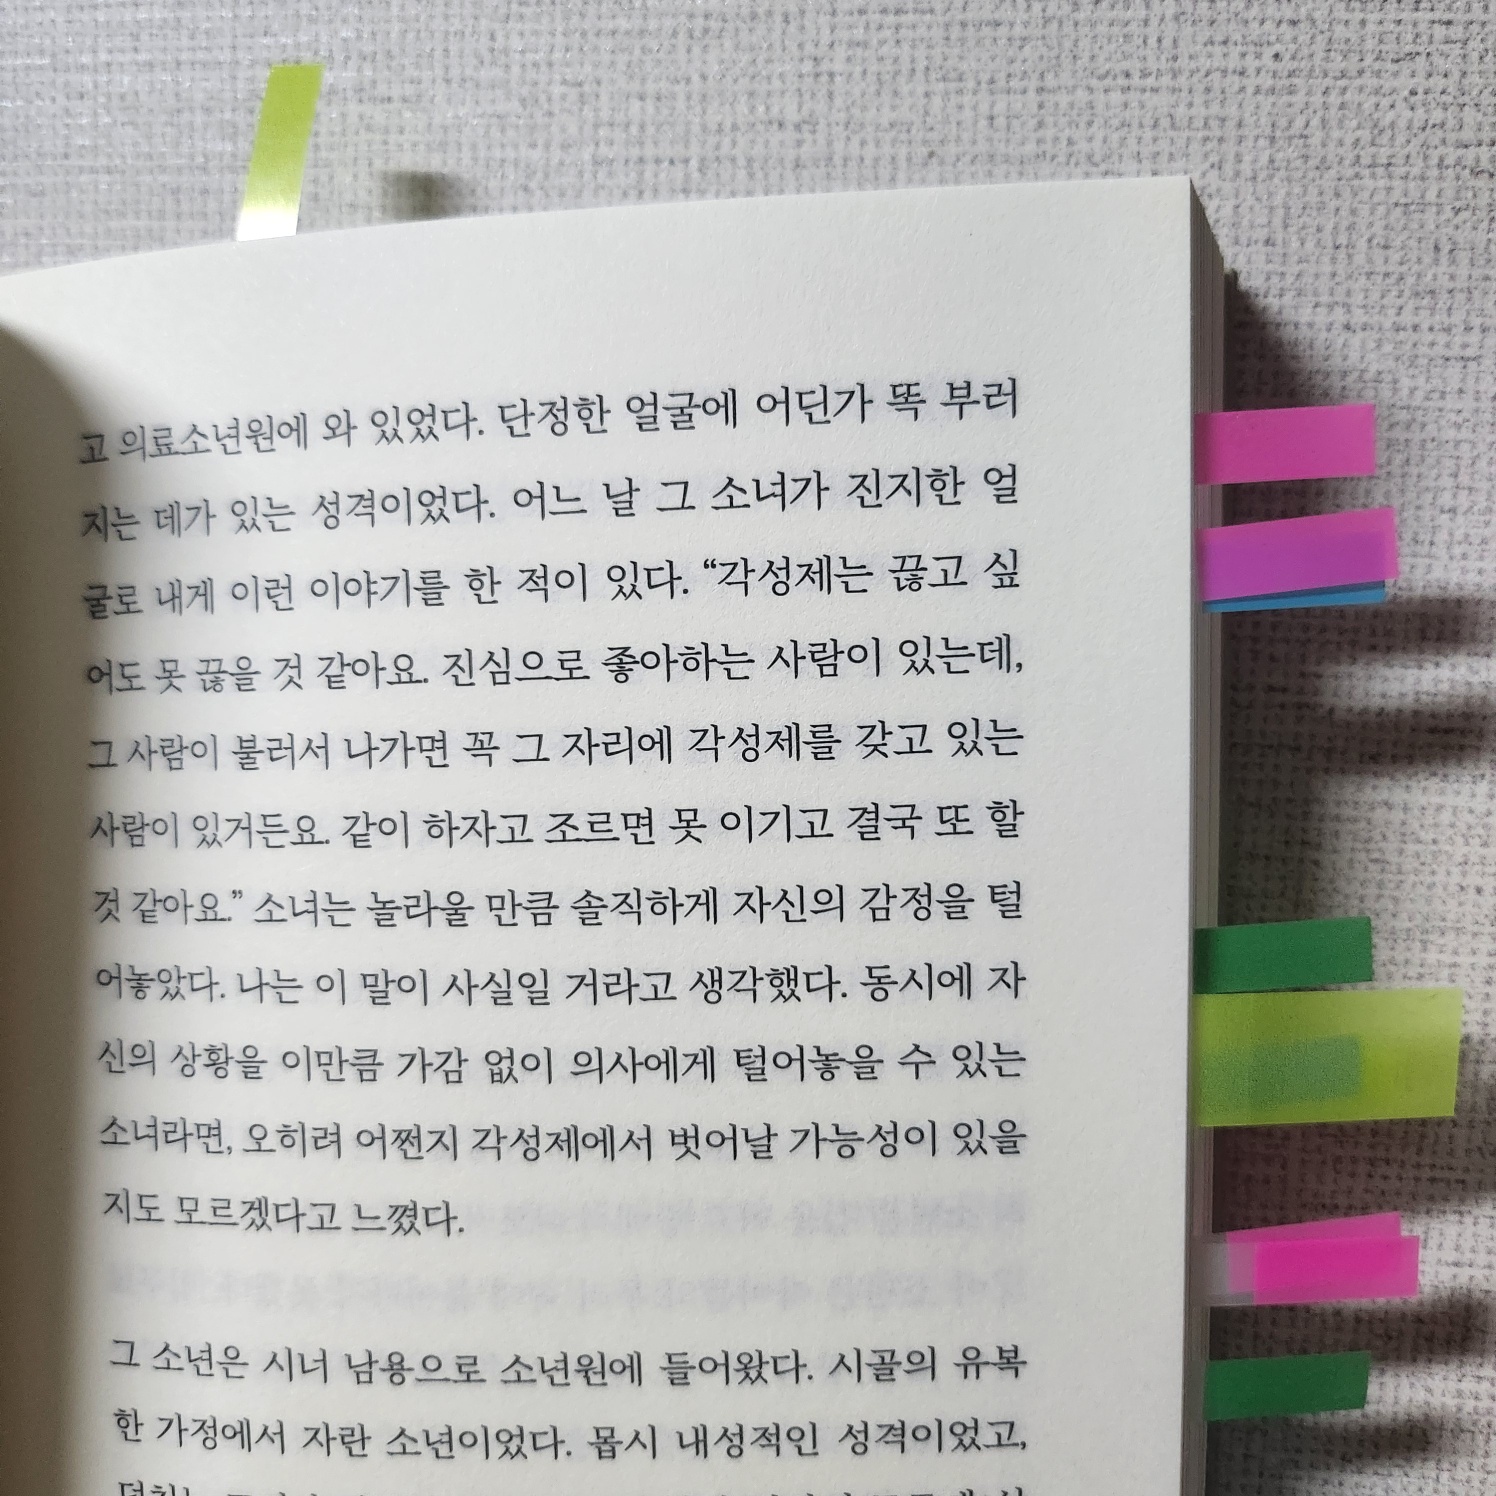 고 의료소년원에 와 있었다. 단정한 얼굴에 어딘가 똑 부러
지는 데가 있는 성격이었다. 어느 날 그 소녀가 진지한 얼
굴로 내게 이런 이야기를 한 적이 있다. “각성제는 끊고 싶
어도 못 끊을 것 같아요. 진심으로 좋아하는 사람이 있는데,
그 사람이 불러서 나가면 꼭 그 자리에 각성제를 갖고 있는
사람이 있거든요. 같이 하자고 조르면 못 이기고 결국 또 할
것 같아요.” 소녀는 놀라울 만큼 솔직하게 자신의 감정을 털
어놓았다. 나는 이 말이 사실일 거라고 생각했다. 동시에 자
신의 상황을 이만큼 가감 없이 의사에게 털어놓을 수 있는
소녀라면, 오히려 어쩐지 각성제에서 벗어날 가능성이 있을
지도 모르겠다고 느꼈다.
그 소년은 시너 남용으로 소년원에 들어왔다. 시골의 유복
한 가정에서 자란 소년이었다. 몹시 내성적인 성격이었고,